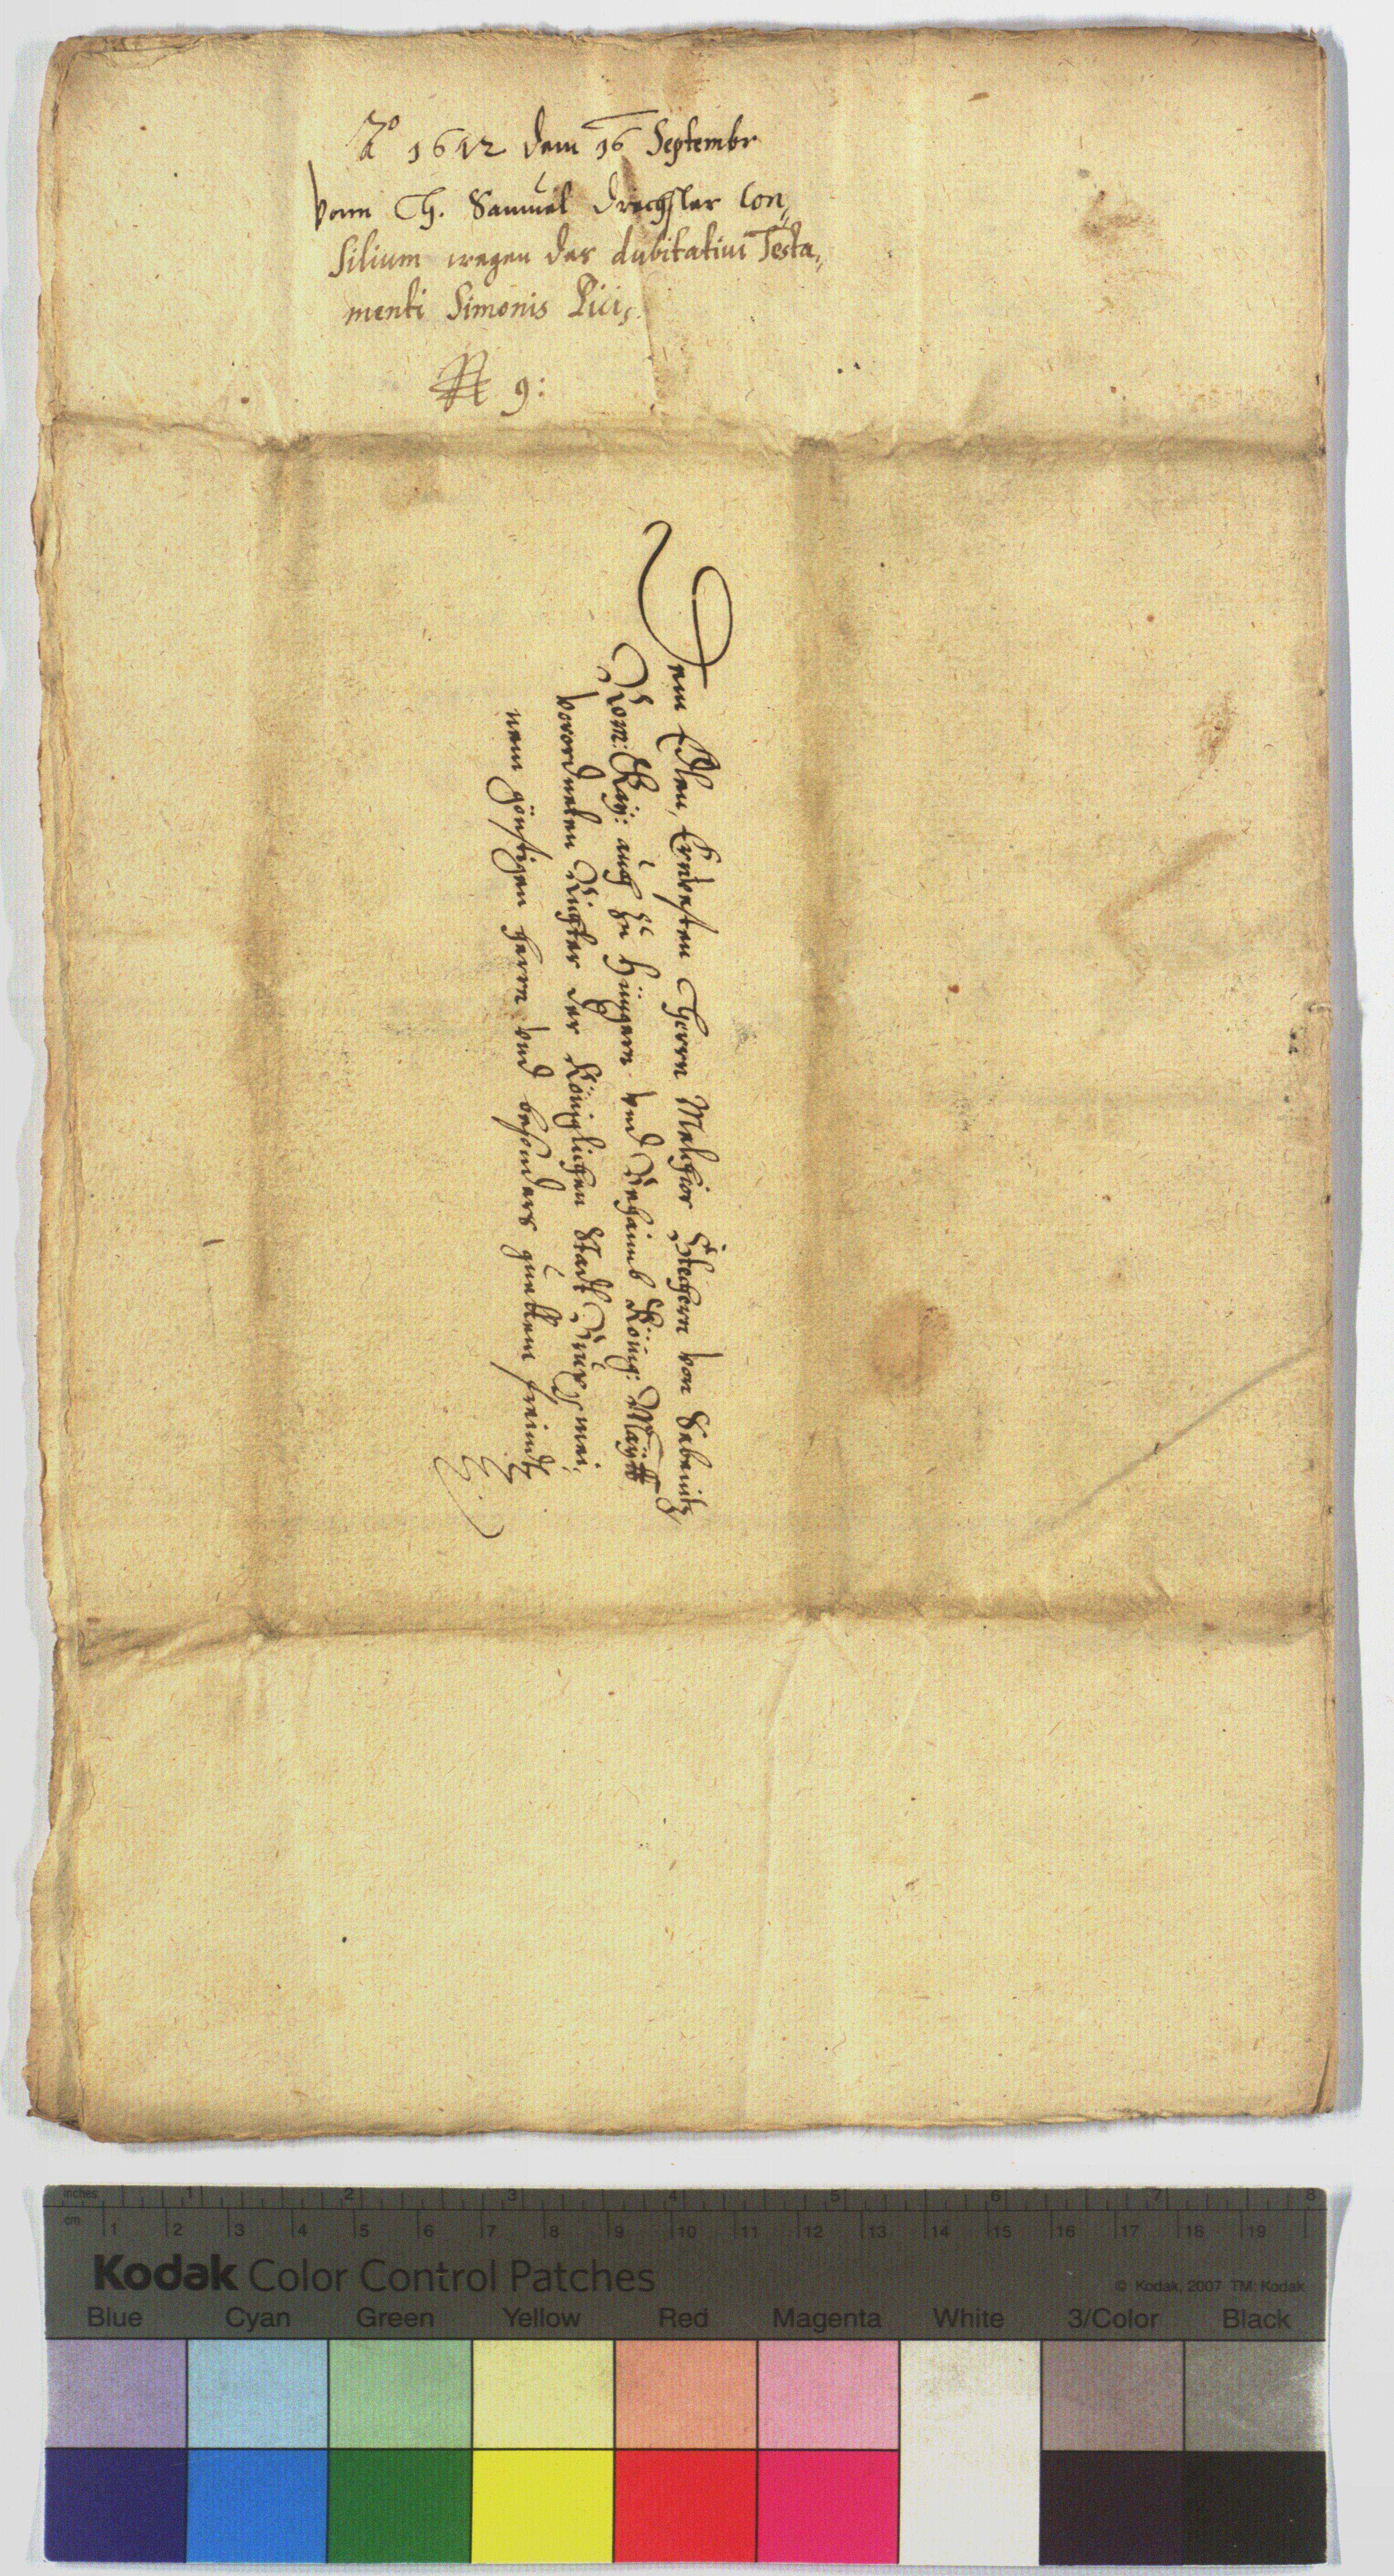 Aᵒ 1612 dem 16 Septembr
vonn H. Samuel Drechsler Con„
silium wegen des dubitativi Testa„
menti Simonis Pici.
N 9:
Dem Edlen, Ehrnvesten Herrn Melchior von
Röm: Kay: auch zu Hungern vnd Behaimb König: Maytt
verordneten Richter der Königlichen Stadt mei:
nem günstigen herrn vnd besonders guetten freundt
inches 1 2 3 4 5 6 7 8
cm 1 2 3 4 5 6 7 8 9 10 11 12 13 14 15 16 17 18 19
Kodak Color Control Patches
© Kodak, 2007 TM: Kodak
Blue Cyan Green Yellow Red Magenta White 3/Color Black